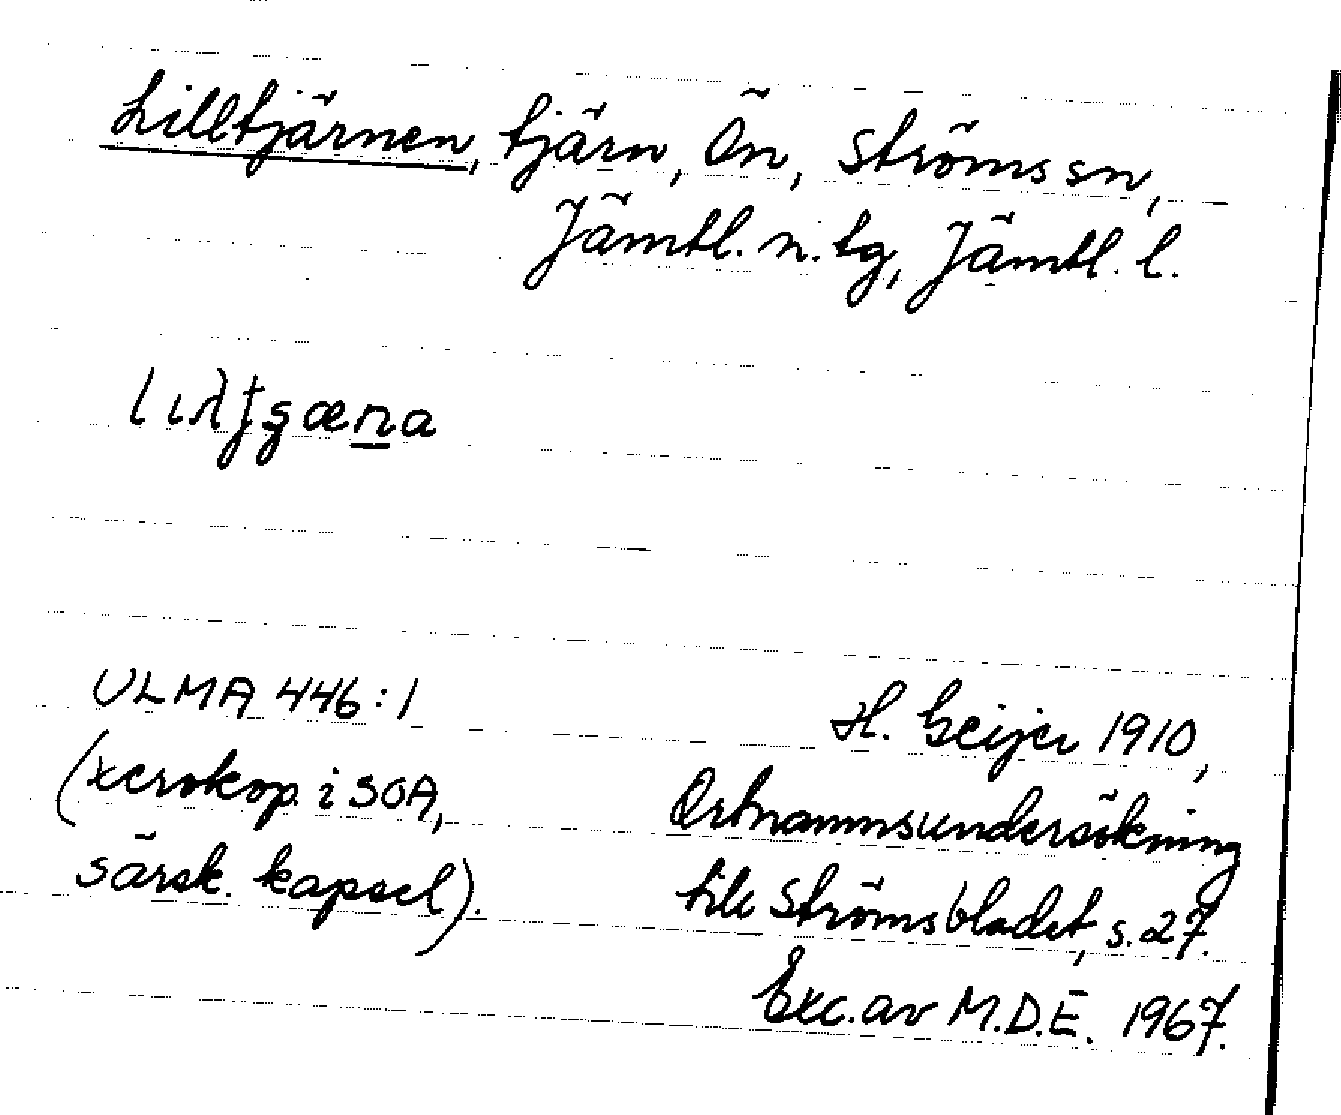 Lilltjärnen, tjärn, Ön, Ströms sn,
Jämtl. n. tg, Jämtl. l.
ULMA 446:1
(xerokop. i SOA,
särsk. kapsel).
H. Geijer 1910,
Ortnamnsundersökning
till Strömsbladet, s. 27.
Exc. av M.D.E. 1967.